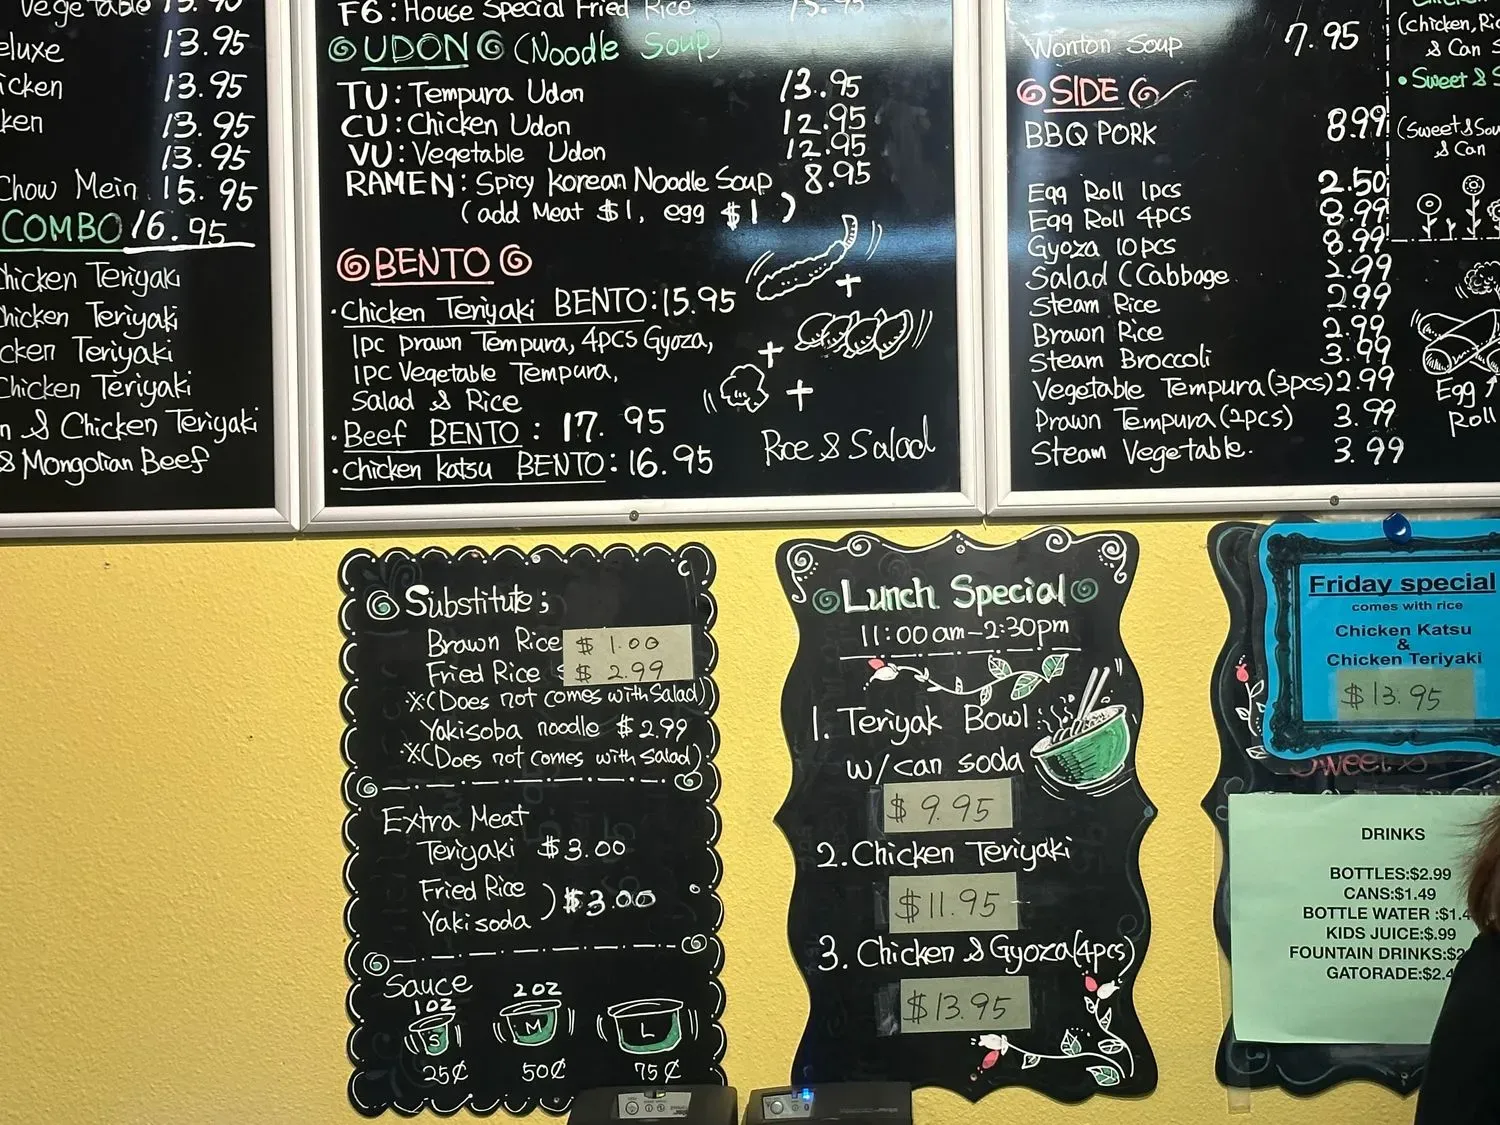 Vegetable 13.90
eluxe 13.95
icken 13.95
ken 13.95
13.95
Chow Mein 15.95
COMBO 16.95
Chicken Teriyaki
hicken Teriyaki
cken Teriyaki
Chicken Teriyaki
n & Chicken Teriyaki
& Mongolian Beef
F6: House Special Fried Rice 15.95
UDON (Noodle Soup)
TU: Tempura Udon 13.95
CU: Chicken Udon 12.95
VU: Vegetable Udon 12.95
RAMEN: Spicy Korean Noodle Soup 8.95
(add Meat $1, egg $1)
BENTO
• Chicken Teriyaki BENTO: 15.95
1pc Prawn Tempura, 4pcs Gyoza,
1pc Vegetable Tempura,
Salad & Rice
• Beef BENTO: 17.95
• Chicken Katsu BENTO: 16.95
+
+
+
Rice & Salad
Wonton Soup 7.95
SIDE
BBQ PORK 8.99
Egg Roll 1pcs 2.50
Egg Roll 4pcs 8.99
Gyoza 10pcs 8.99
Salad (Cabbage 2.99
Steam Rice 2.99
Brown Rice 2.99
Steam Broccoli 3.99
Vegetable Tempura (3pcs) 2.99
Prawn Tempura (2pcs) 3.99
Steam Vegetable. 3.99
(chicken, Ric
& Can S
• Sweet & S
(Sweet & Sou
& Can
Egg
Roll
Substitute;
Brown Rice $1.00
Fried Rice $2.99
※(Does not comes with Salad)
Yakisoba noodle $2.99
※(Does not comes with Salad)
Extra Meat
Teriyaki $3.00
Fried Rice
Yakisoda ) $3.00
Sauce
1oz 2oz
S M L
25¢ 50¢ 75¢
Lunch Special
11:00am-2:30pm
1. Teriyak Bowl
w/can soda
$9.95
2. Chicken Teriyaki
$11.95
3. Chicken & Gyoza (4pcs)
$13.95
Friday special
comes with rice
Chicken Katsu
&
Chicken Teriyaki
$13.95
Sweet &
DRINKS
BOTTLES:$2.99
CANS:$1.49
BOTTLE WATER :$1.4
KIDS JUICE:$.99
FOUNTAIN DRINKS:$2
GATORADE:$2.4